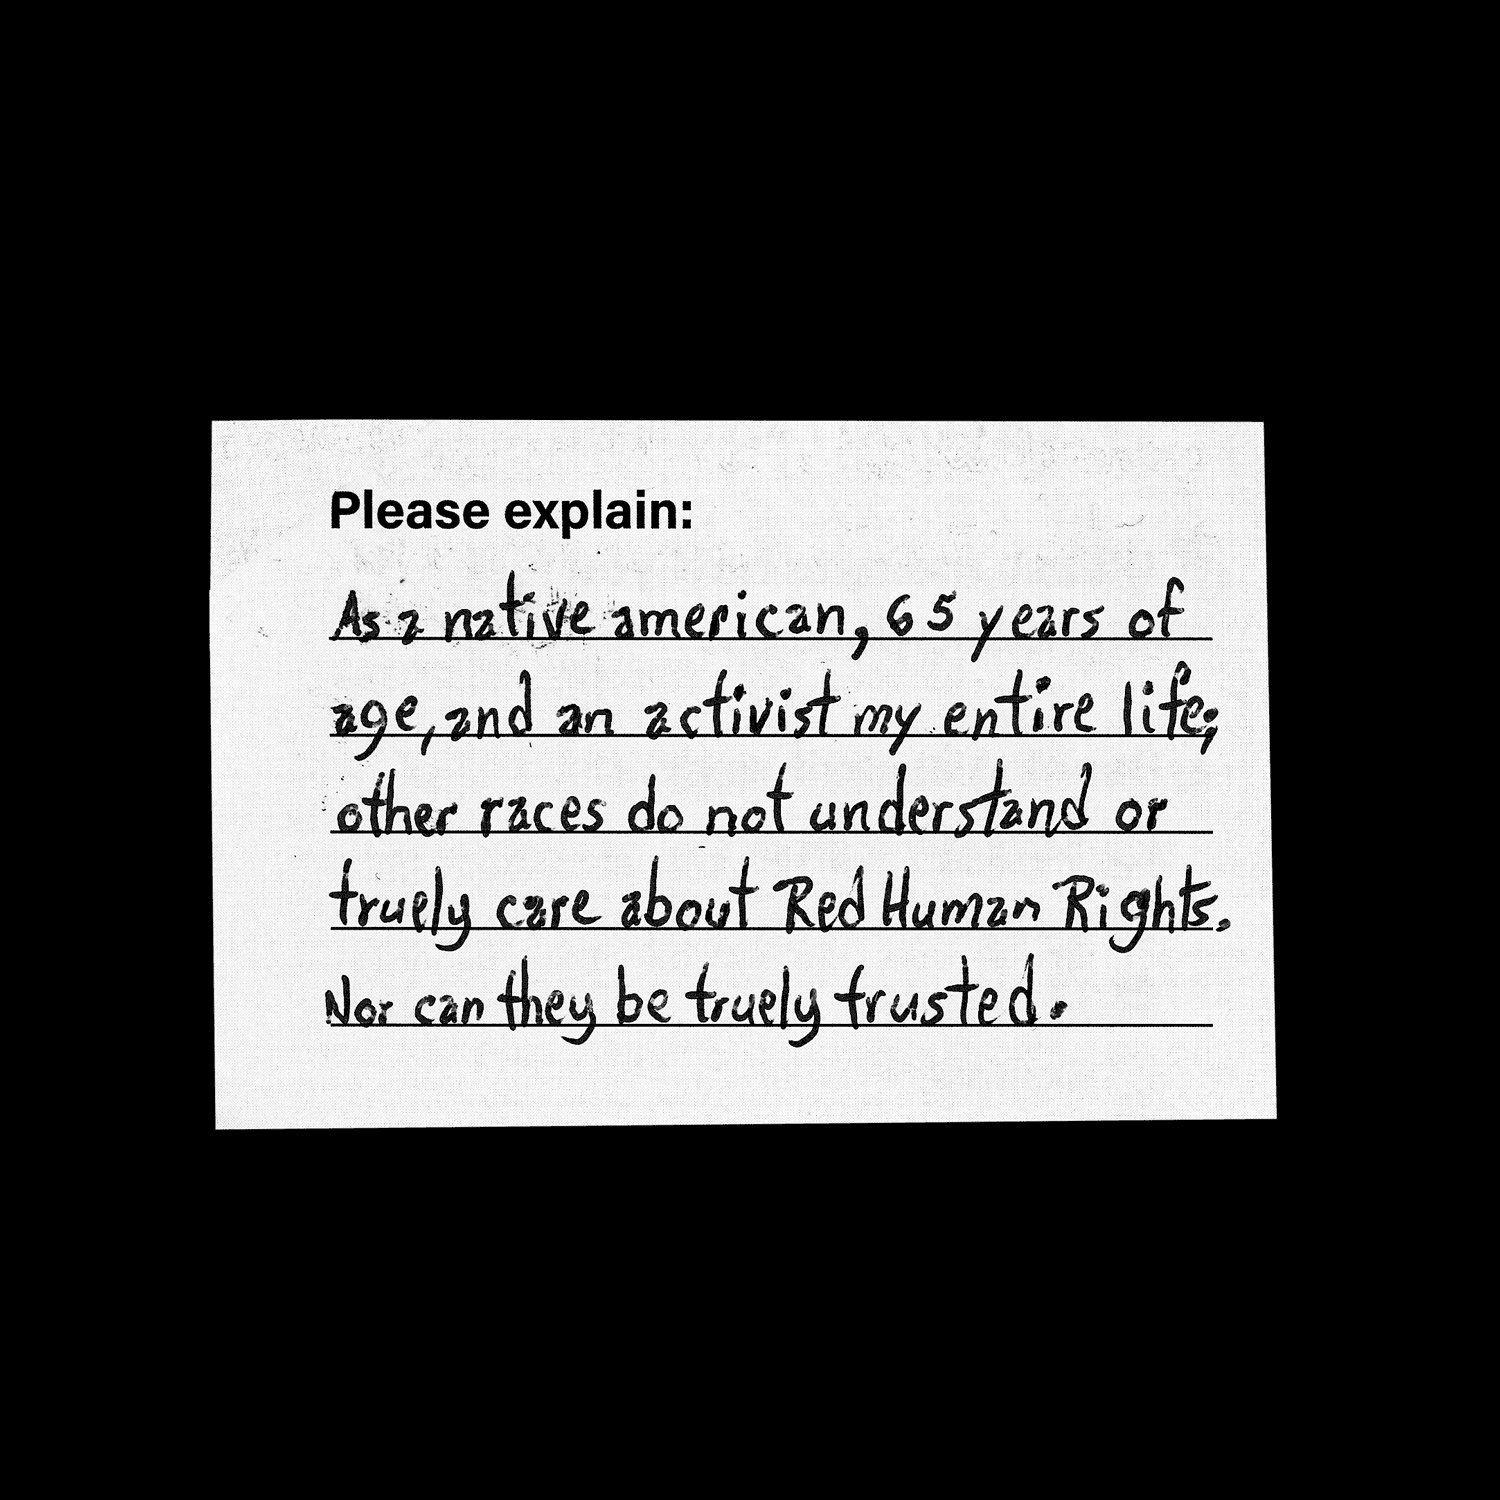 Please explain:
As a native american, 65 years of
age, and an activist my entire life;
other races do not understand or
truely care about Red Human Rights.
Nor can they be truely trusted.